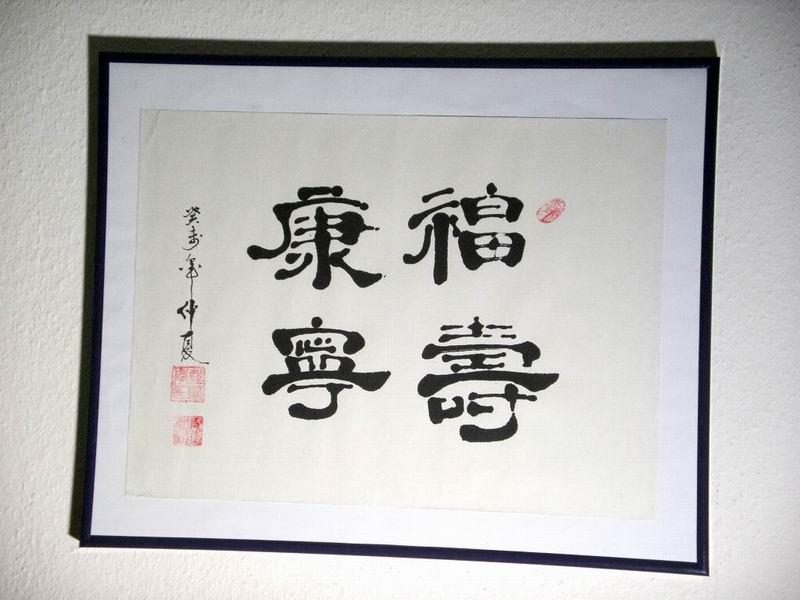 福壽
康寧
癸未年仲夏